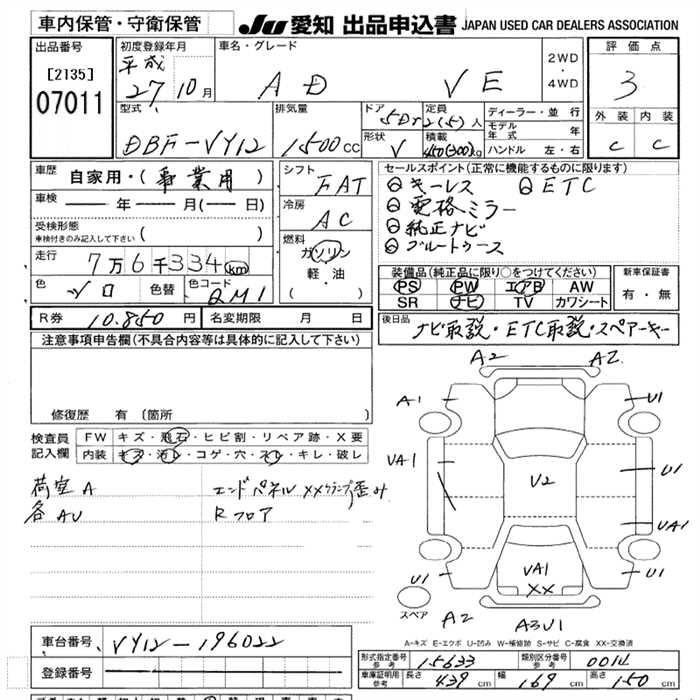 車内保管・守衛保管 JU 愛知 出品申込書 JAPAN USED CAR DEALERS ASSOCIATION
出品番号 [2135] 07011
初度登録年月 平成 27 10月
車名・グレード AD VE
2WD・4WD
評価点 3
外装 C 内装 C
型式 DBF-VY12
排気量 1500cc
ドア 5Dr
定員 2(5)人
形状 V
積載 450(300)kg
ディーラー・並行
モデル年式 年
ハンドル 左・右
車歴 自家用・(事業用)
車検 ー年ー月(ー日)
受検形態 ( )
車検付きのみ記入して下さい
走行 7万6千334km
色 シロ 色替 色コード QM1
シフト FAT
冷房 AC
燃料 ガソリン
軽・油
( )
セールスポイント(正常に機能するものに限ります)
キーレス ETC
電格ミラー
純正ナビ
ブルートゥース
装備品(純正品に限り○をつけてください)
PS PW エアB AW
SR ナビ TV カワシート
新車保証書
有・無
R券 10.850円 名変期限 月 日
後日品 ナビ取説・ETC取説・スペアーキー
注意事項申告欄(不具合内容等は具体的に記入して下さい)
修復歴 有(箇所
検査員記入欄
FW キズ・飛石・ヒビ割・リペア跡・X要
内装 キズ・汚レ・コゲ・穴・スレ・キレ・破レ
荷室A エンドパネルXXクランプ歪ミ
各AU Rフロア
A2 A2
A1 U1
VA1 V2 U1
UA1
U1 VA1 XX U1
スペア A2 A3U1
A-キズ E-エクボ U-凹み W-補修跡 S-サビ C-腐食 XX-交換済
車台番号 VY12-196022
登録番号
形式指定番号 参考 15633 類別区分番号 参考 0014
車庫証明用 参考 長さ 439cm 幅 169cm 高さ 150cm